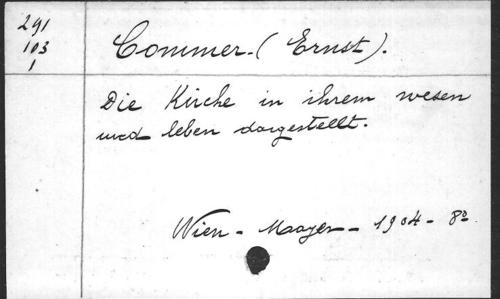 291
103
1
Commer. (Ernst).
Die Kirche in ihrem wesen
und leben dargestellt.
Wien - Mayer - 1904 - 8º